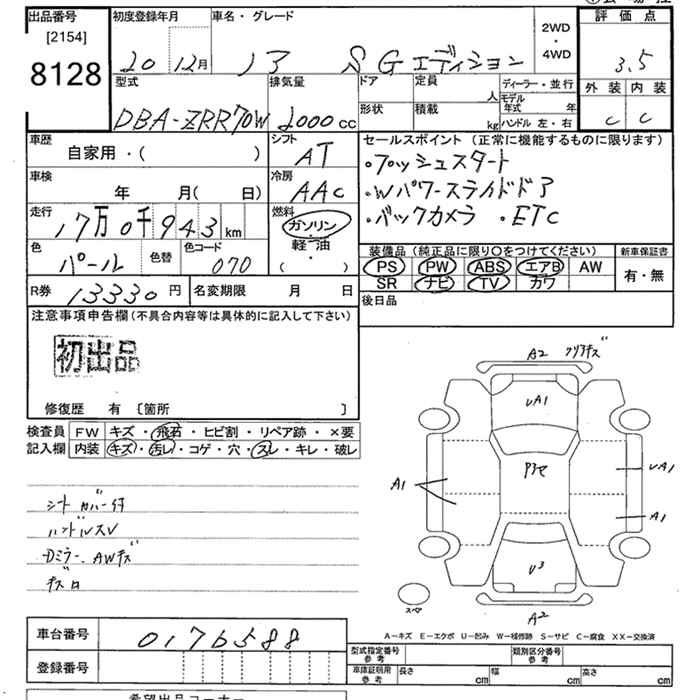 出品番号 初度登録年月 車名・グレード 2WD・4WD 評価点
[2154]
8128
20 12月 ノア SGエディション 3.5
型式 排気量 ドア 定員 人 ディーラー・並行 外装 内装
DBA-ZRR70W 2000cc 形状 積載 kg モデル年式 年 C C
ハンドル 左・右
車歴 自家用・( ) シフト AT セールスポイント (正常に機能するものに限ります)
・プッシュスタート
車検 年 月( 日) 冷房 AAC ・Wパワースライドドア
走行 17万0千943km 燃料 ガソリン・軽油 ( ・ ) ・バックカメラ ・ETC
色 パール 色替 色コード 070 装備品 (純正品に限り○をつけてください) 新車保証書
PS PW ABS エアB AW 有・無
SR ナビ TV カワ
R券 13330円 名変期限 月 日 後日品
注意事項申告欄(不具合内容等は具体的に記入して下さい)
初出品
A2 クリアキズ
修復歴 有 〔箇所 〕 UA1
検査員記入欄 FW キズ・飛石・ヒビ割・リペア跡・×要
内装 キズ・汚レ・コゲ・穴・スレ・キレ・破レ
A1 UA1
シートカバー付 A1
ハンドルスレ
Dミラー、AWキズ
キズ凹 U3
スペア A2
A-キズ E-エクボ U-凹み W-補修跡 S-サビ C-腐食 XX-交換済
車台番号 0176588 型式指定番号 参考 類別区分番号 参考
登録番号 車庫証明用 参考 長さ cm 幅 cm 高さ cm
希望出品コーナー